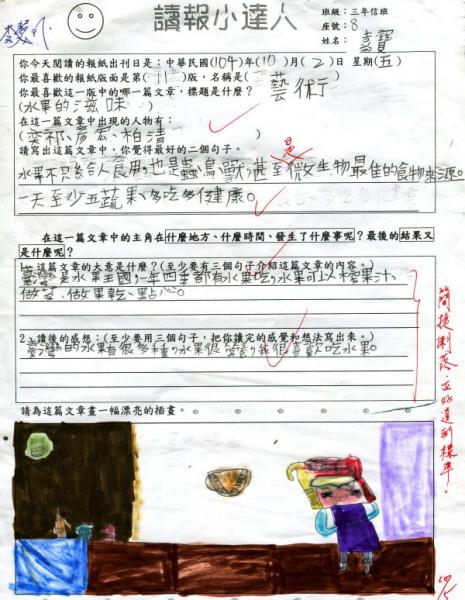 讀報小達人
班級：三年信班
座號：8
姓名：
你今天閱讀的報紙出刊日是：中華民國(104)年(10)月(2)日 星期(五)
你最喜歡的報紙版面是第(11)版，名稱是(藝術行)
你最喜歡這一版中的哪一篇文章，標題是什麼？
(水果的滋味)
在這一篇文章中出現的人物有：
(奕祁、彥宏、柏清)
請寫出這一篇文章中，你覺得最好的二個句子。
是
水果不只給人食用，也是蟲、鳥、獸，甚至微生物最佳的食物來源。
一天至少五蔬果、多吃多健康。
在這一篇文章中的主角在什麼地方、什麼時間、發生了什麼事呢？最後的結果又
是什麼呢？
1、這篇文章的大意是什麼？(至少要有三個句子介紹這篇文章的內容。)
臺灣是水果王國，一年四季都有水果吃，水果可以榨果汁、
做菜、做果乾、點心。
2、讀後的感想：(至少要用三個句子，把你讀完的感覺和想法寫出來。)
臺灣的水果有很多種，水果很營養，我很喜歡吃水果。
簡捷俐落，並好達到標準。
請為這篇文章畫一幅漂亮的插畫。
10/5